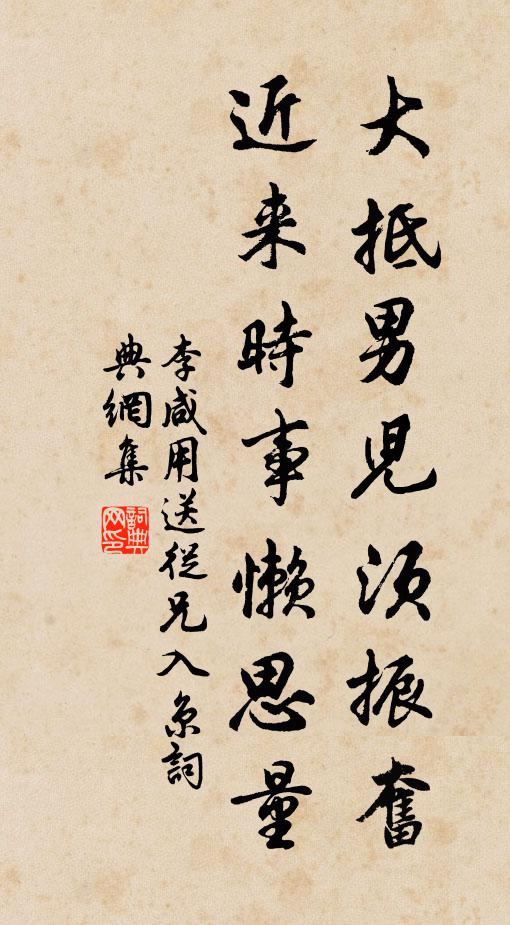 大抵男児須振奮
近来時事懶思量
李咸用送従兄入京詞
典網集
詞典网印